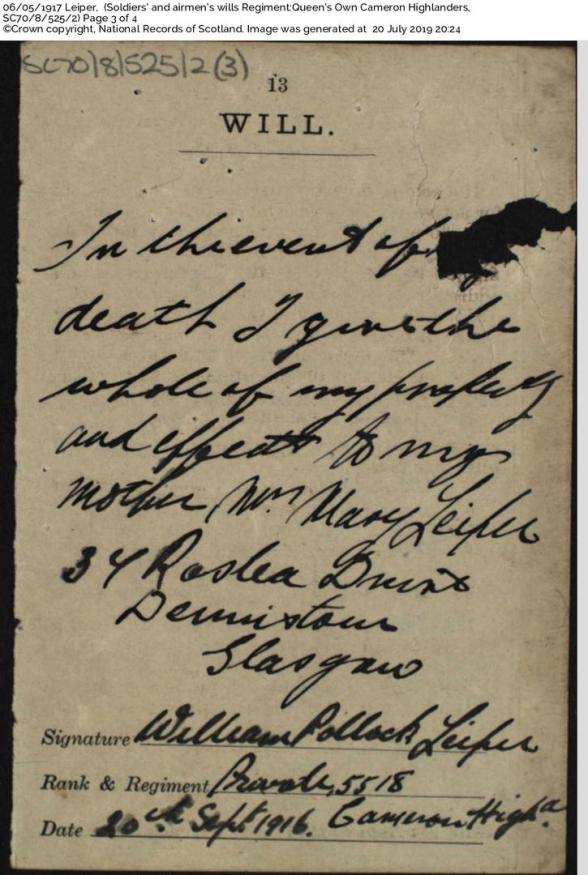 06/05/1917 Leiper, (Soldiers' and airmen's wills Regiment:Queen's Own Cameron Highlanders,
SC70/8/525/2) Page 3 of 4
©Crown copyright, National Records of Scotland. Image was generated at 20 July 2019 20:24
SC70/8/525/2(3)
13
WILL.
In the event of
death I give the
whole of my property
and effects to my
mother Mrs Mary Leiper
34 Roslea Drive
Dennistoun
Glasgow
Signature William Pollock Leiper
Rank & Regiment Private, 5518
Date 20th Sept 1916. Cameron Highrs.